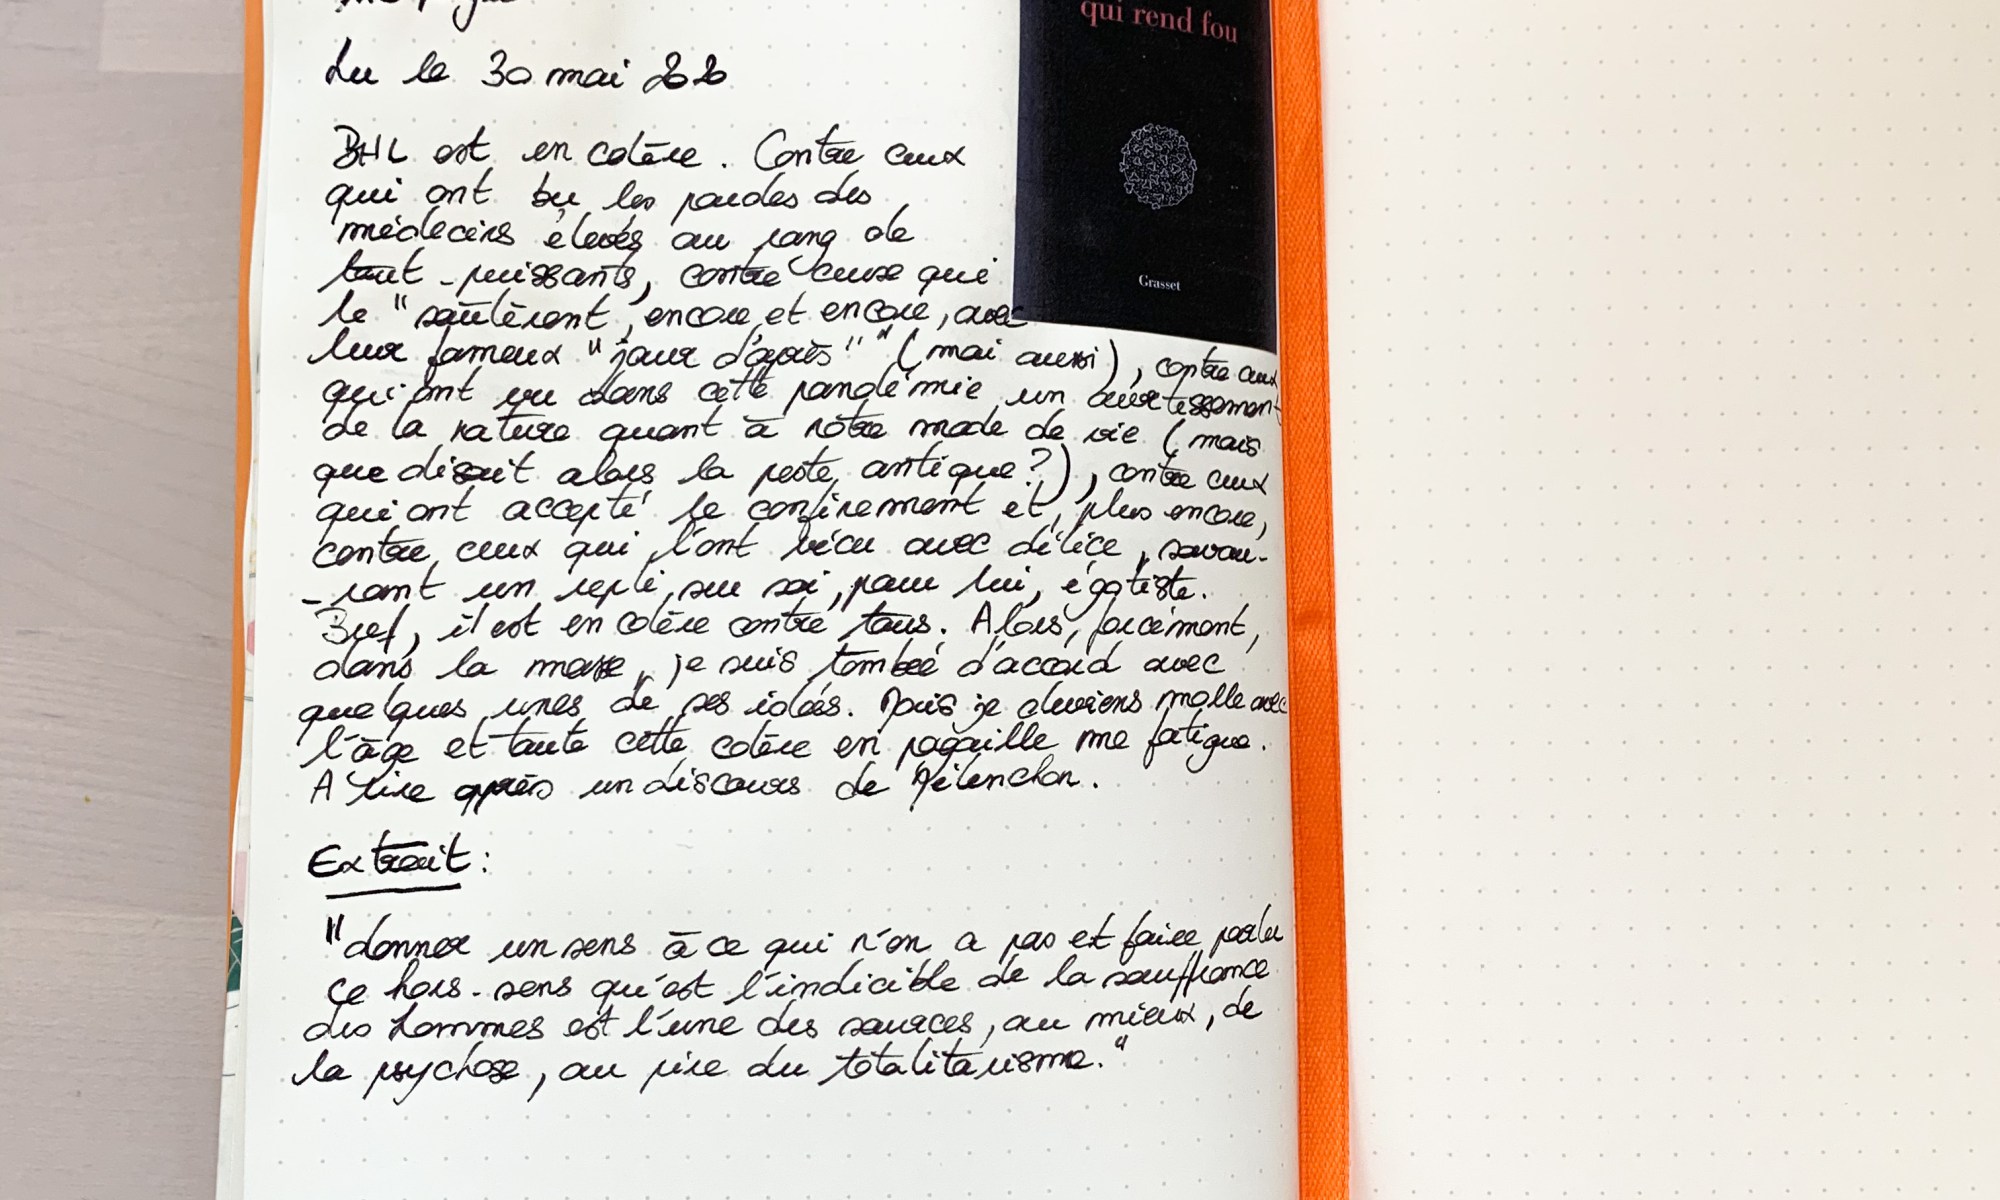 qui rend fou
Lu le 30 mai 2020
BHL est en colère. Contre ceux
qui ont bu les paroles des
médecins élevés au rang de
tout-puissants, contre ceux qui
le "saoûlèrent, encore et encore, avec
leur fameux "jour d'après"" (moi aussi), contre ceux
qui ont vu dans cette pandémie un avertissement
de la nature quant à notre mode de vie (mais
que disait alors la peste antique?), contre ceux
qui ont accepté le confinement et, plus encore,
contre ceux qui l'ont vécu avec délice, savou-
-rant un repli sur soi, pour lui, égotiste.
Bref, il est en colère contre tous. Alors, forcément,
dans la masse, je suis tombée d'accord avec
quelques unes de ses idées. Mais je deviens molle avec
l'âge et toute cette colère en pagaille me fatigue.
A lire après un discours de Mélenchon.
Grasset
Extrait :
"donner un sens à ce qui n'en a pas et faire parler
ce hors-sens qu'est l'indicible de la souffrance
des hommes est l'une des sources, au mieux, de
la psychose, au pire du totalitarisme."